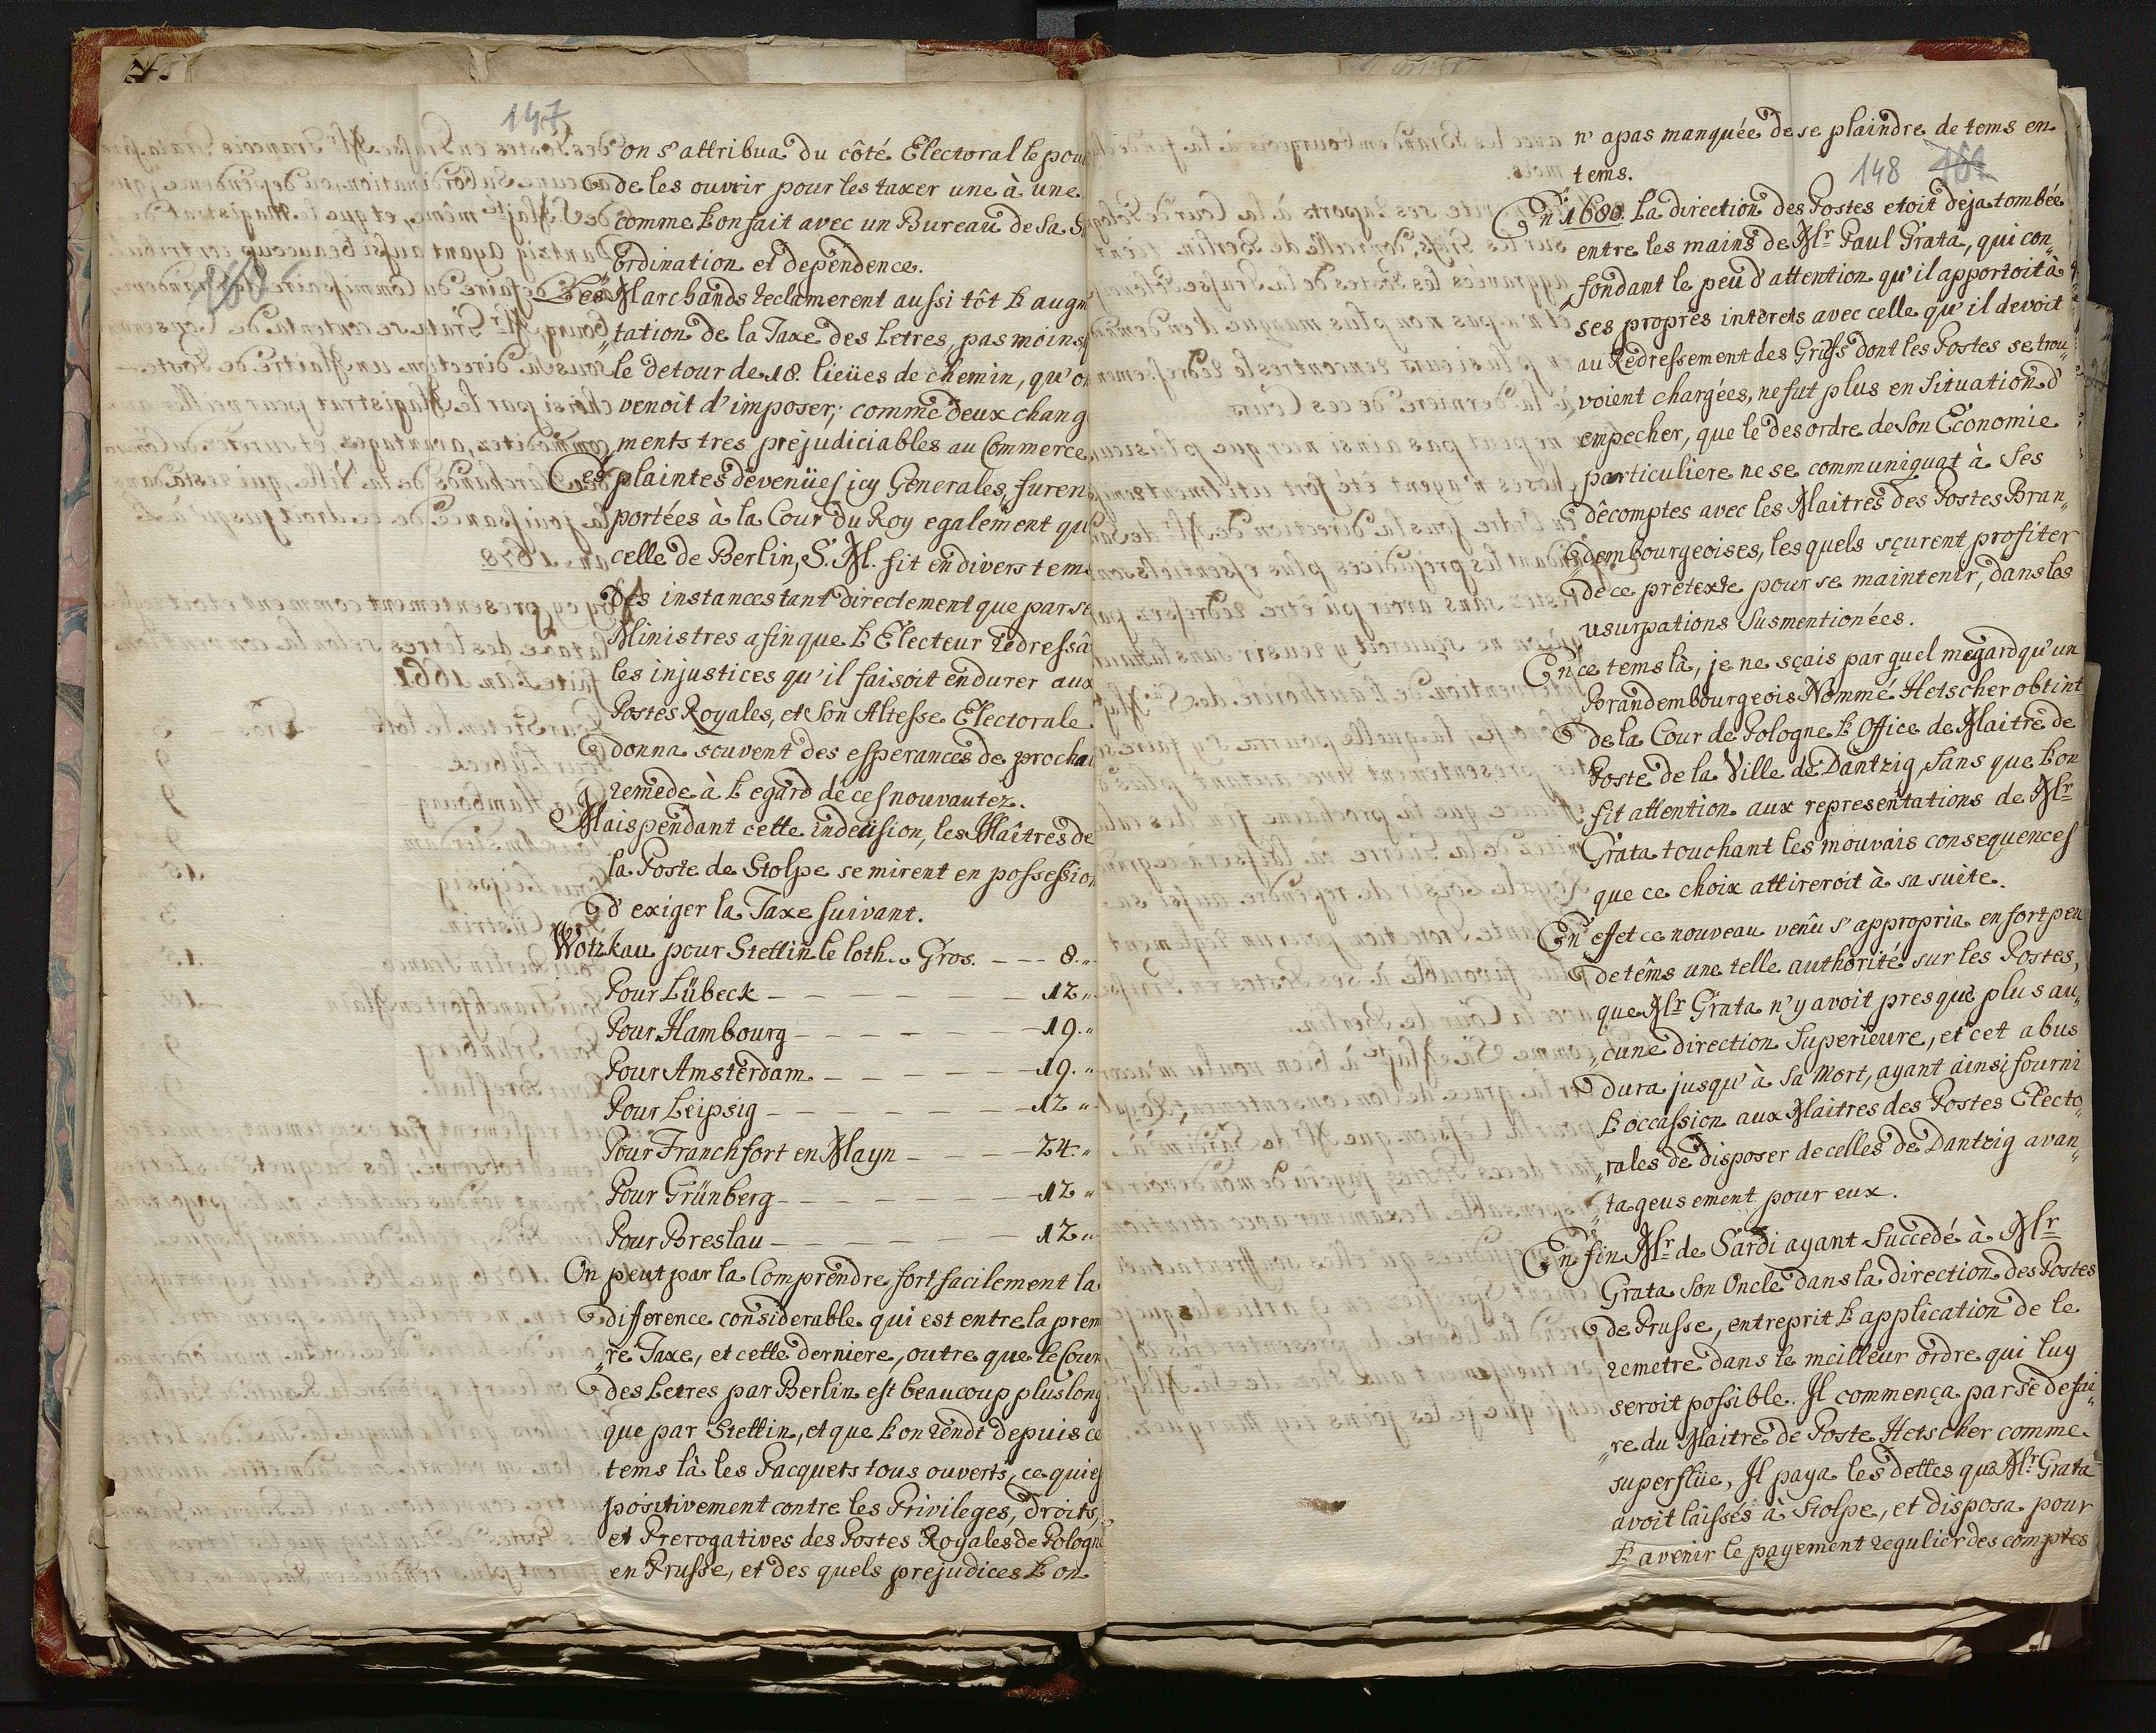 147
on s'attribua du côté Electoral le pou
de les ouvrir pour les taxer une à une
comme L on fait avec un Bureau de sa S
ordination et dependence.
160
Les Marchands reclamerent aussi tôt L augm
„tation de la Taxe des Letres, pas moins
le detour de 18. lieües de chemin, qu'o
venoit d'imposer; comme deux chang
„ments tres prejudiciables au Commerce
Ces plaintes devenües icy Generales, furen
portées à la Cour du Roy egalement qu
celle de Berlin, S. M. fit en divers tems
des instances tant directement que par se
Ministres afin que L Electeur redressâ
les injustices qu'il faisoit endurer aux
Postes Royales, et Son Altesse Electorale
donna souvent des esperances de prochai
remede à L egard de ces nouvautez.
Mais pendant cette indecision, les Maîtres de
la Poste de Stolpe se mirent en possession
d'exiger la Taxe suivant.
Wotzkau pour Stettin le loth.. Gros. - - - 8. „
Pour Lübeck - - - - - - - 12 „
Pour Hambourg - - - - - - 19. „
Pour Amsterdam. - - - - - 19. „
Pour Leipsig - - - - - - - 12 „
Pour Franchfort en Mayn - - - - 24. „
Pour Grünberg - - - - - - - 12 „
Pour Breslau - - - - - - - 12 „
On peut par la Comprendre fort facilement la
difference considerable qui est entre la prem
„re Taxe, et cette derniere, outre que le Cour
des Letres par Berlin est beaucoup plus long
que par Stettin, et que L on rendt depuis ce
tems là les Pacquets tous ouverts, ce qui es
positivement contre les Privileges, Droits,
et Prerogatives des Postes Royales de Pologn
en Prusse, et des quels prejudices L on
n'apas manquée de se plaindre de tems en
tems.
148 161
En 1680. La direction des Postes etoit deja tombée
entre les mains de Mr Paul Grata, qui con„
„fondant le peu d'attention qu'il apportoit à
ses propres interets avec celle qu'il devoit
au Redressement des Griefs dont les Postes se trou„
„voient chargées, ne fut plus en Situation d'
empecher, que le desordre de son Economie
particuliere ne se communiquat à Ses
decomptes avec les Maitres des Postes Bran„
„dembourgeoises, lesquels sçurent profiter
de ce pretexte pour se maintenir, dans les
usurpations susmentionées.
En ce tems là, je ne sçais par quel megard qu'un
Brandembourgeois Nommé Hetscher obtint
de la Cour de Pologne L Office de Maitre de
Poste de la Ville de Dantzig, Sans que L on
fit attention aux representations de Mr
Grata touchant les mouvais consequences
que ce choix attireroit à sa suite.
En effet ce nouveau venû s'appropria en fort peu
de têms une telle authorité sur les Postes,
que Mr Grata n'y avoit presque plus au„
„cune direction Superieure, et cet abus
dura jusqu'à Sa Mort, ayant ainsi fourni
L occassion aux Maitres des Postes Electo„
„rales de disposer de celles de Dantzig avan„
„tageusement pour eux.
En fin Mr de Sardi ayant Succedé à Mr
Grata Son Oncle dans la direction des Postes
de Prusse, entreprit L application de le
remetre dans le meilleur ordre qui luy
seroit possible. Il commença par se defai„
„re du Maitre de Poste Hetscher comme
superflüe, Il paya les dettes que Mr. Grata
avoit laissés à Stolpe, et disposa pour
L avenir le payement regulier des comptes